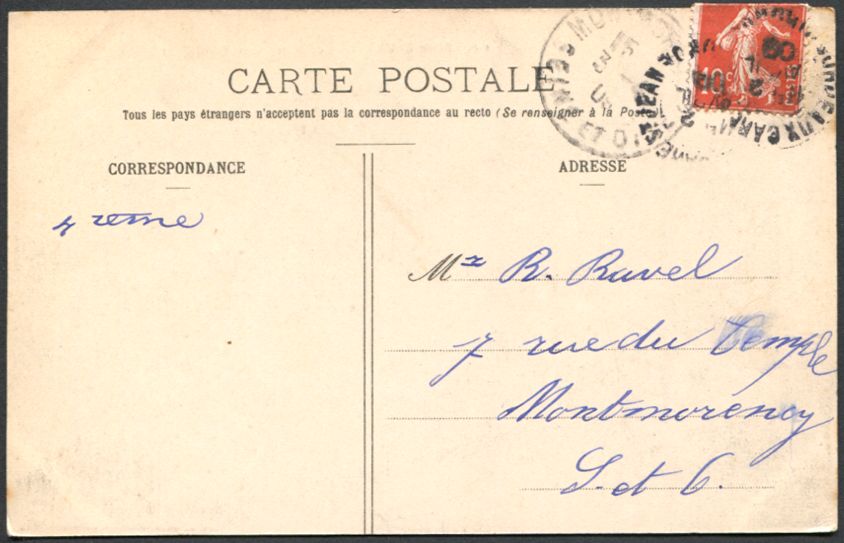 CARTE POSTALE
Tous les pays étrangers n'acceptent pas la correspondance au recto (Se renseigner à la Poste
CORRESPONDANCE
ADRESSE
Mr R. Ravel
7 rue du Temple
Montmorency
S. et O.